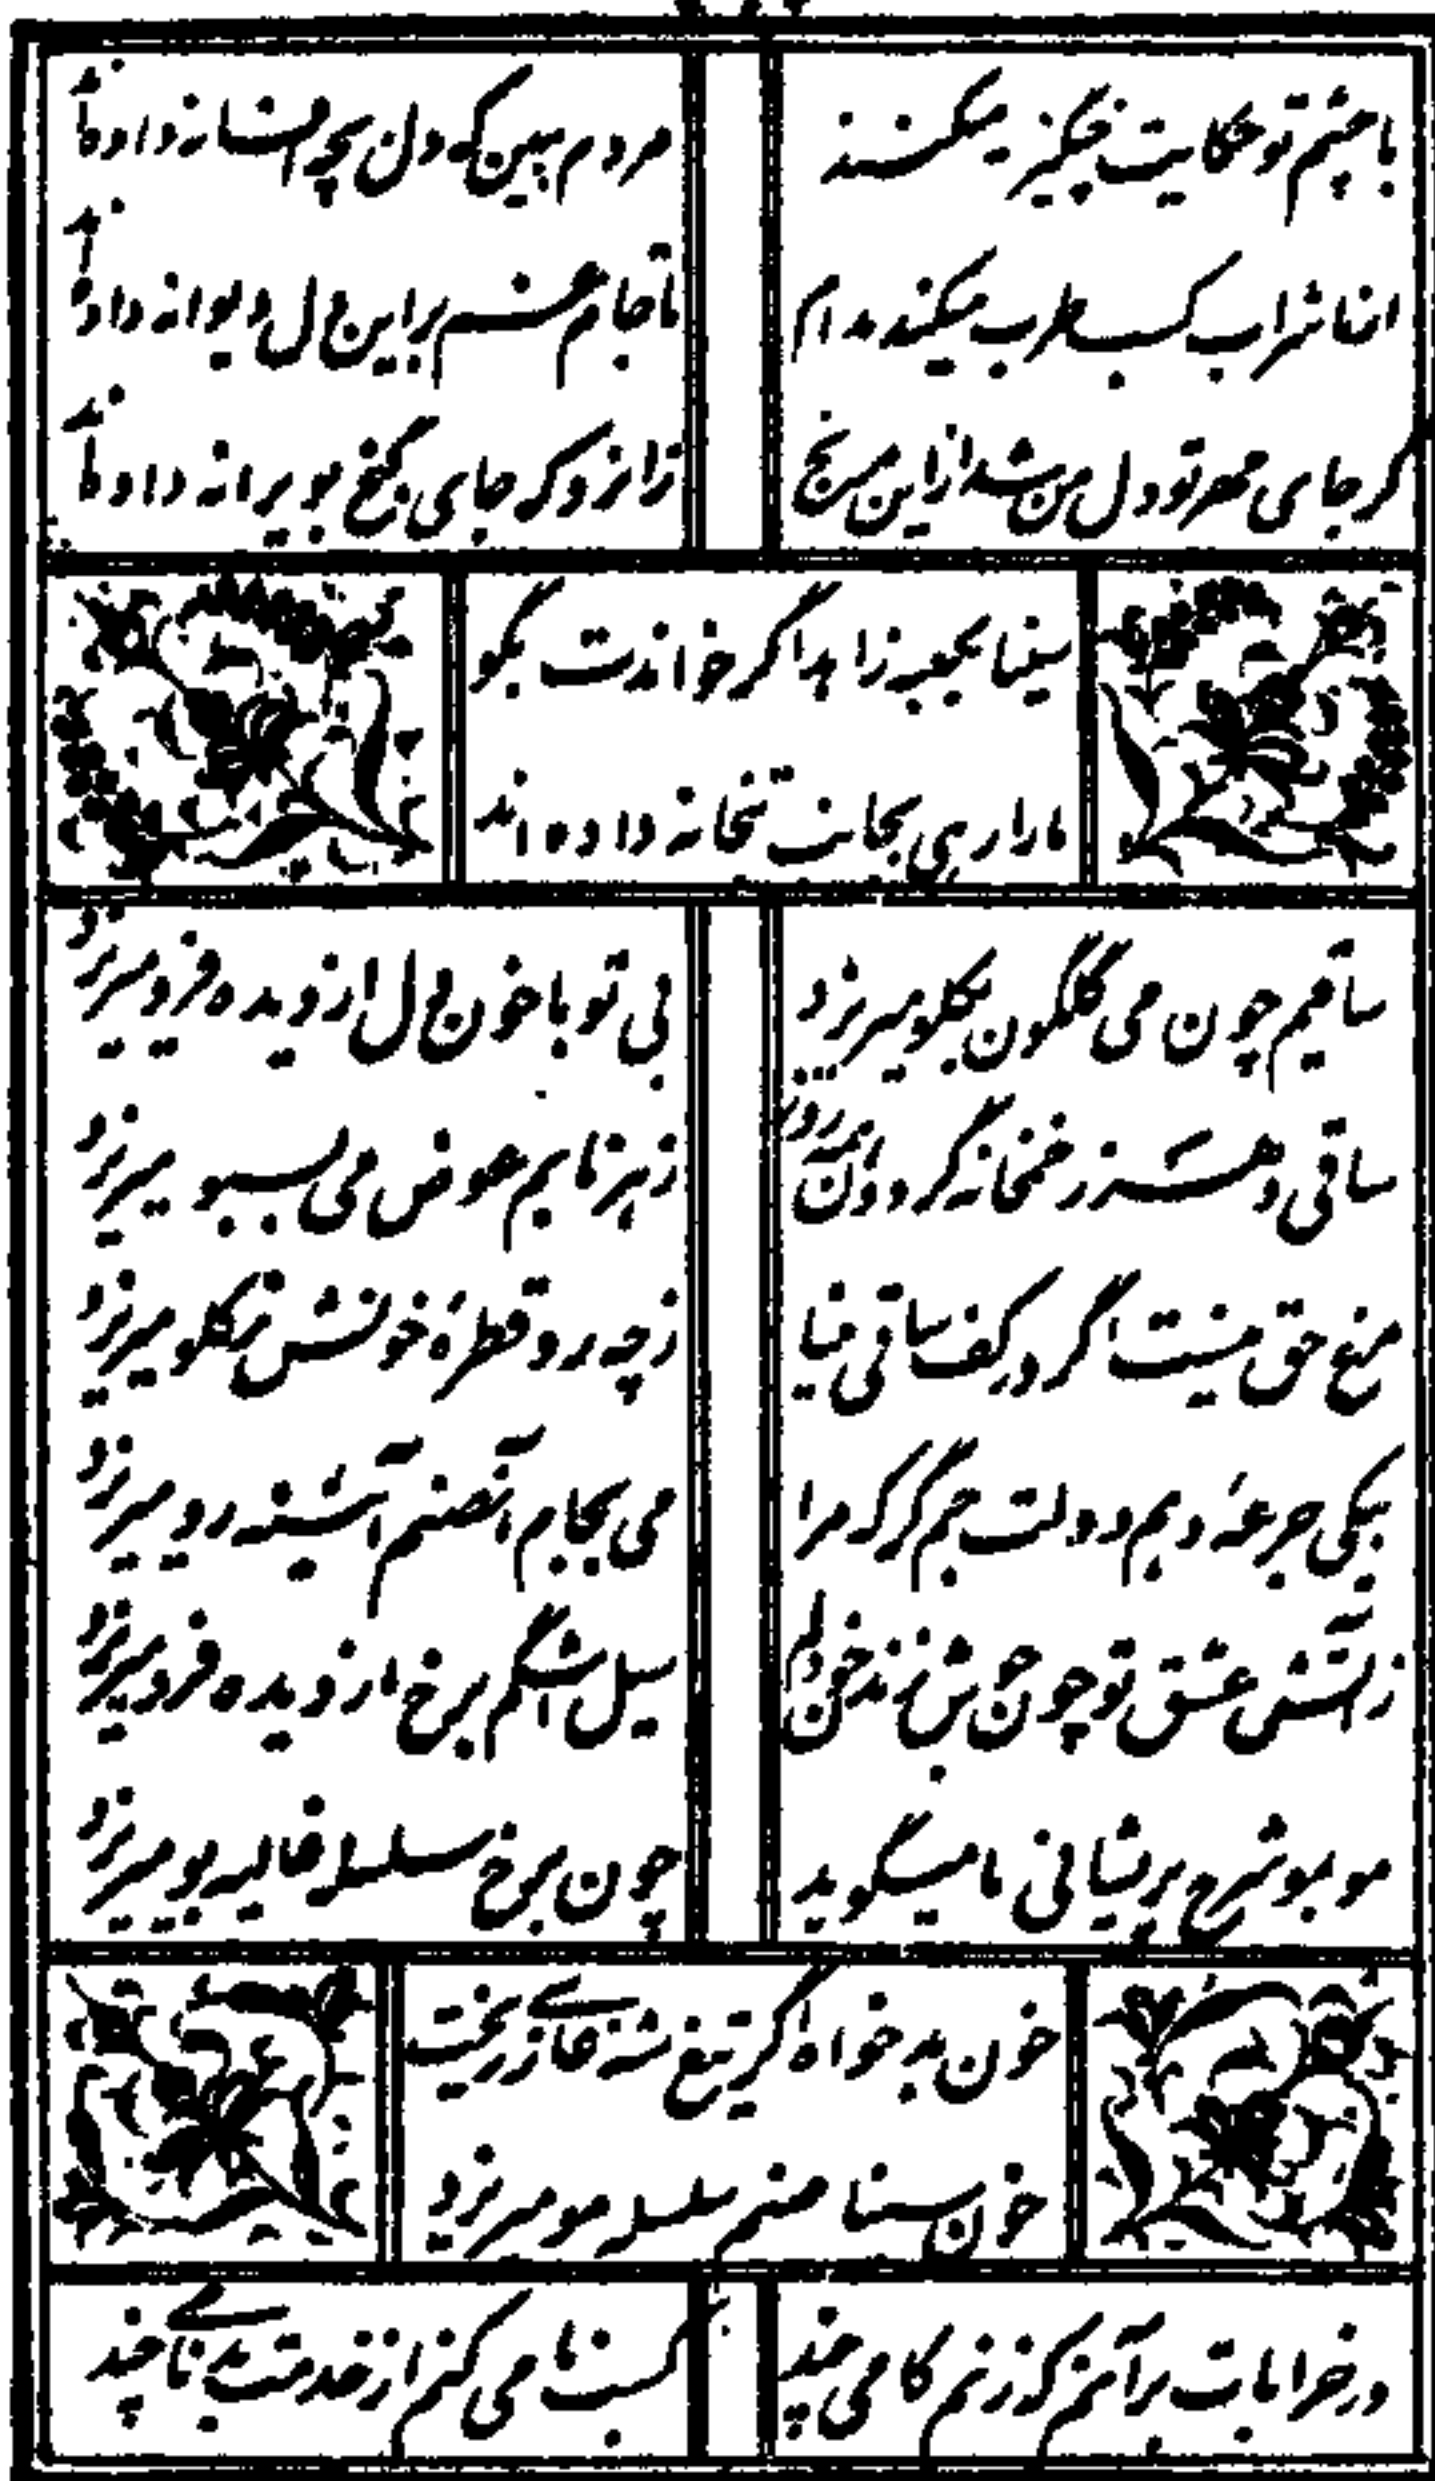 با چشم تو حکایت چنگیز میکنند
مردم ببین که دل بچه افسانه داده‌اند
آنان شراب کسب طرب میکنند مدام
تا جام غم بر این دل دیوانه داده‌اند
گر جای مهر تو دل من شد از این مرنج
زانرو که جای گنج بویرانه داده‌اند
مینا بکعبه زاهد اگر خواندت بگو
ما را رهی بجانب بتخانه داده‌اند
ساقیم چون می گلگون بگلو میریزد
بی تو باخون دل از دیده فرو میریزد
ساقی دهر ز خمخانه گردون
زهر نابم عوض می بسبو میریزد
مرغ حق نیست اگر در کف ساقی مینا
ز چه رو قطرهٔ خونش ز گلو میریزد
بیکی جرعهٔ دهم دولت جم گر که مرا
می بجام آنصنم آئینه رو میریزد
ز آتش عشق تو چون جوش زند خون دلم
سیل اشگم برخ از دیده فرو میریزد
مو بمو شرح پریشانی ما میگوید
چون برخ سلسلهٔ غالیه بو میریزد
خون بدخواه اگر تیغ شه غازی ریخت
خون صنم سلسله مو میریزد
در خرابات برآنم که زنم گامی چند
کسب نامی کنم از خدمت بدنامی چند